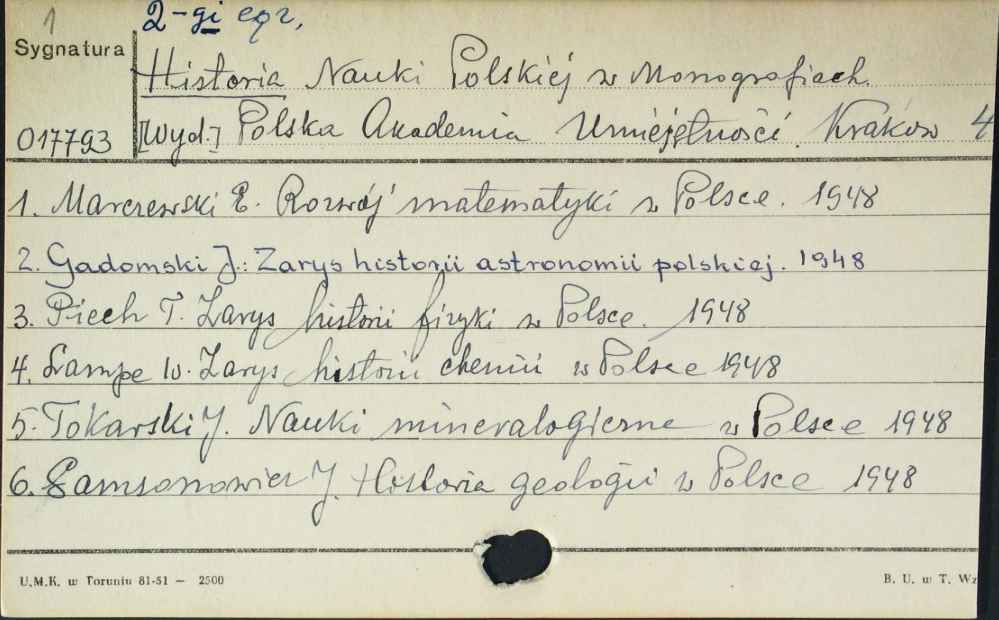 1 2-gi egz.
Sygnatura
Historia Nauki Polskiej w Monografiach.
017793 [Wyd.] Polska Akademia Umiejętności. Kraków 4
1. Marczewski E. Rozwój matematyki w Polsce. 1948
2. Gadomski J.: Zarys historii astronomii polskiej. 1948
3. Piech T. Zarys historii fizyki w Polsce. 1948
4. Lampe W. Zarys historii chemii w Polsce 1948
5. Tokarski J. Nauki mineralogiczne w Polsce 1948
6. Samsonowicz J. Historia geologii w Polsce 1948
U.M.K. w Toruniu 81-51 — 2500
B. U. w T. Wz